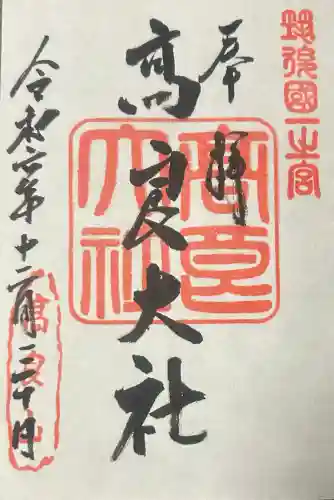 筑後國一之宮
奉拝
高良大社
高良大社
令和六年十二月三十日
高良山